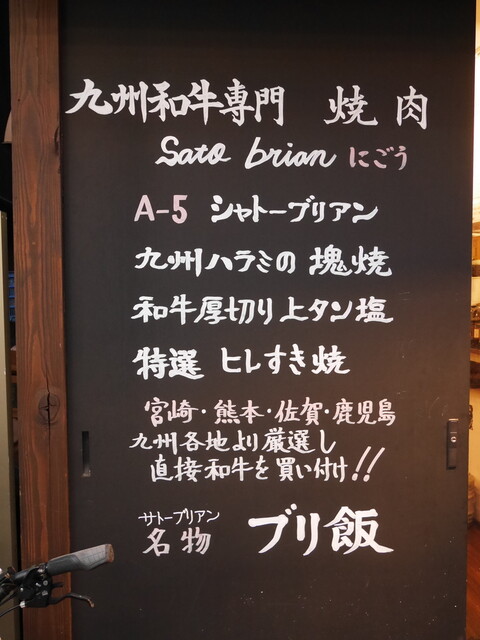 九州和牛専門 焼肉
Sato brian にごう
A-5 シャトーブリアン
九州ハラミの塊焼
和牛厚切り上タン塩
特選 ヒレすき焼
宮崎・熊本・佐賀・鹿児島
九州各地より厳選し
直接和牛を買い付け!!
サトーブリアン
名物 ブリ飯